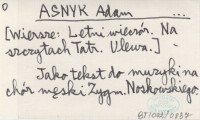 O
ASNYK Adam ...
[Wiersze: Letni wieczór. Na
szczytach Tatr. Ulewa.]
Jako tekst do muzyki na
chór męski Zygm. Noskowskiego.